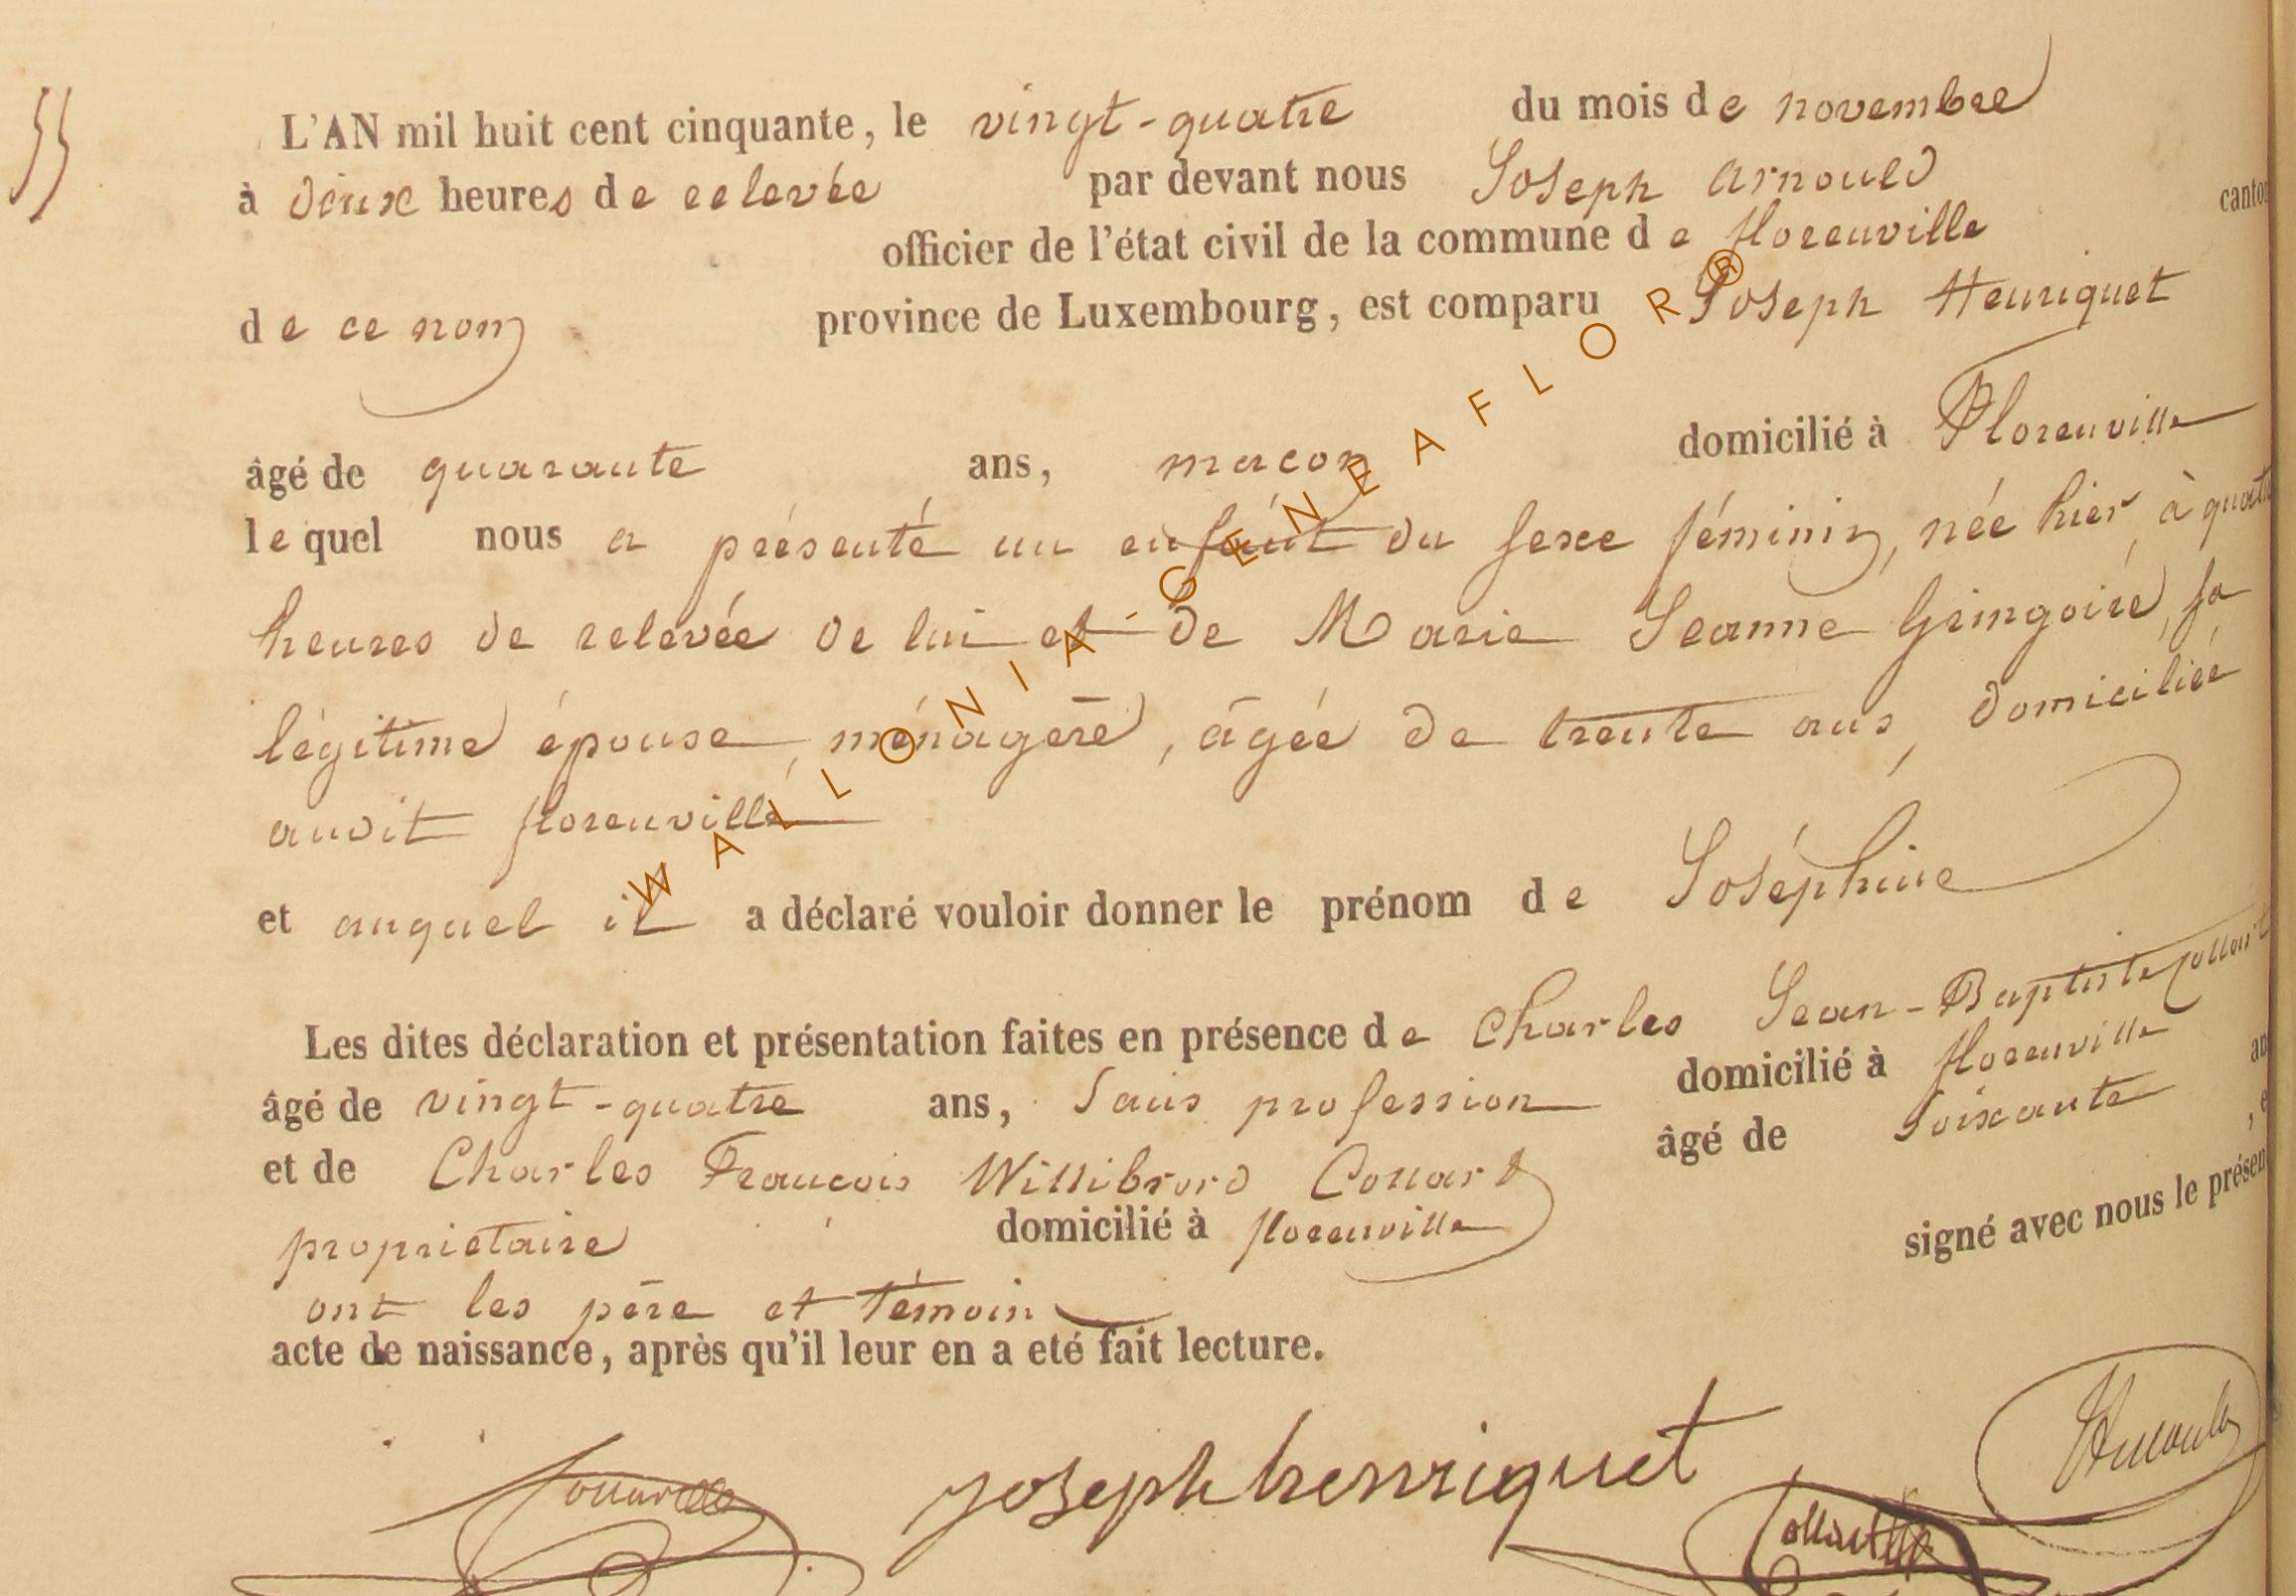 55
L'AN mil huit cent cinquante, le vingt-quatre du mois de novembre
à deux heures de relevée par devant nous Joseph Arnould
officier de l'état civil de la commune de florenville canton
de ce nom province de Luxembourg, est comparu Joseph Henriquet
âgé de quarante ans, macon domicilié à Florenville
lequel nous a présenté un enfant du sexe féminin, née hier, à quatre
heures de relevée de lui et de Marie Jeanne Gringoire, sa
légitime épouse, ménagère, âgée de trente ans, domiciliée
audit florenville
et auquel il a déclaré vouloir donner le prénom de Joséphine
Les dites déclaration et présentation faites en présence de Charles Jean-Baptiste Collart
âgé de vingt-quatre ans, Sans profession domicilié à florenville
et de Charles Francois Willibrord Collart âgé de Soixante an
propriétaire domicilié à florenville , e
ont les père et témoin signé avec nous le présen
acte de naissance, après qu'il leur en a eté fait lecture.
Joseph henriquet
WALLONIA-GENEAFLOR®